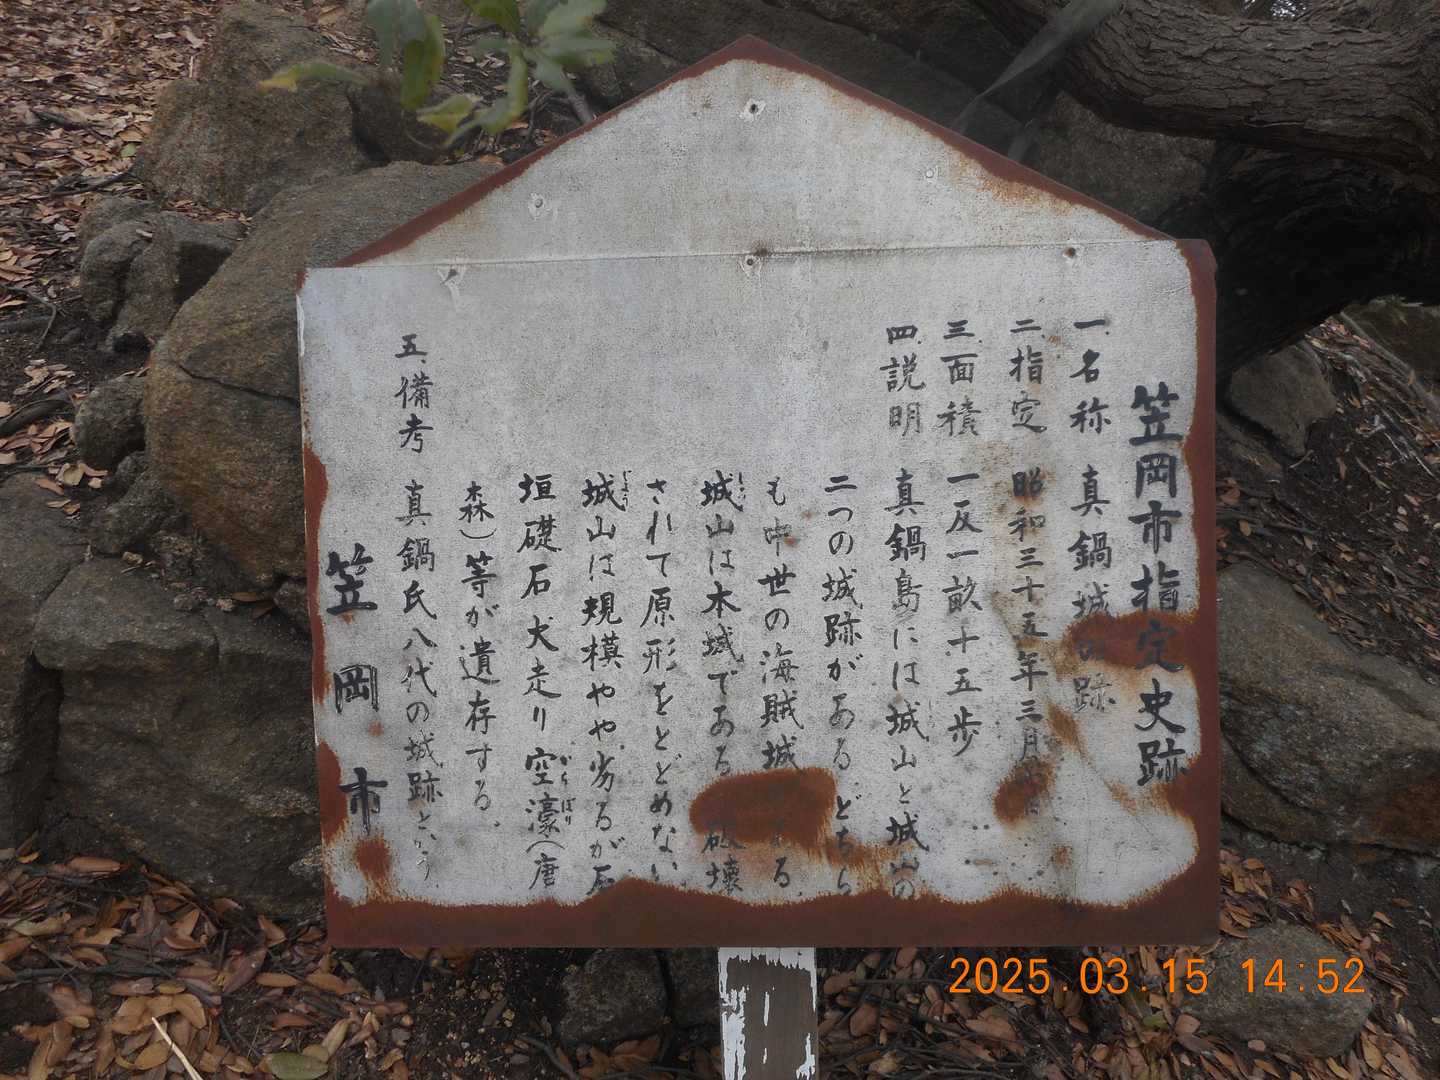 笠岡市指定史跡
一.名称 真鍋城の跡
二.指定 昭和三十五年三月 日
三.面積 一反一畝十五歩
四.説明 真鍋島には城山と城山の
二つの城跡がある どちら
も中世の海賊城 ある.
城山は本城である 破壊
されて原形をとどめない
城山は規模やや劣るが石
垣礎石犬走り空濠(唐
森)等が遺存する.
五.備考 真鍋氏八代の城跡という.
笠岡市
2025.03.15 14:52